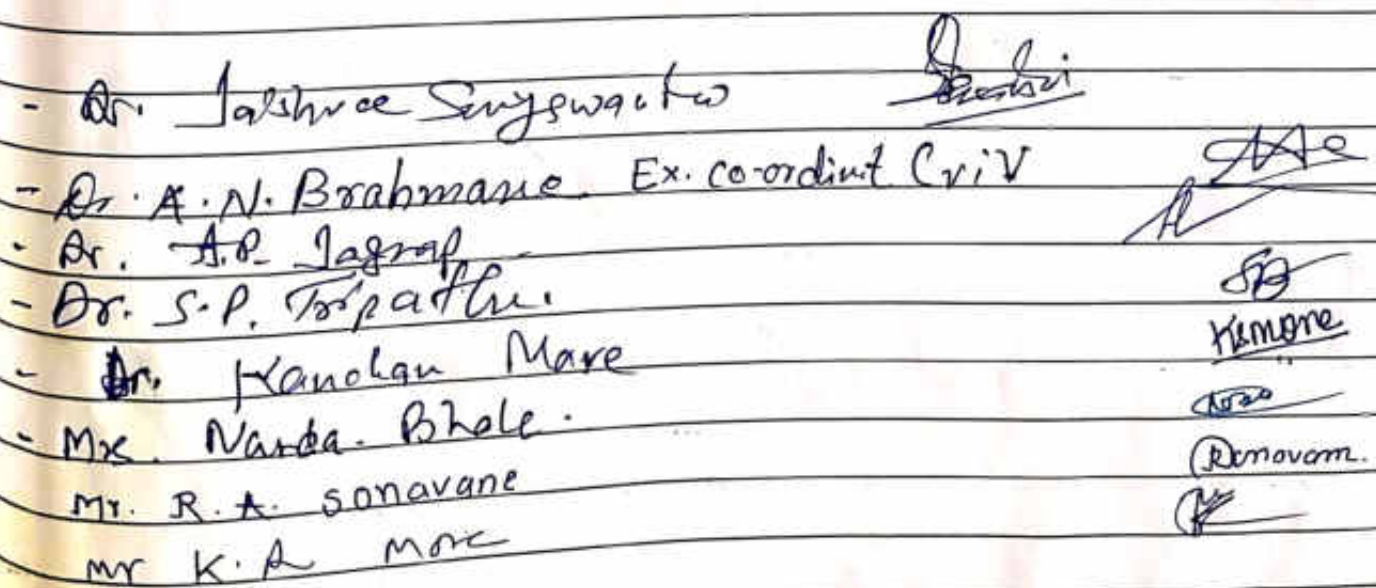 - Dr. Jaishree
- Dr. A. N. Brahmane. Ex. co-ordinat CriV
- Dr. A.P. Jagtap
- Dr. S.P. Tripathi.
- Dr. Kanchan More
- Mrs. Nanda. Bhole.
Mr. R. A. sonavane
mr K. A more